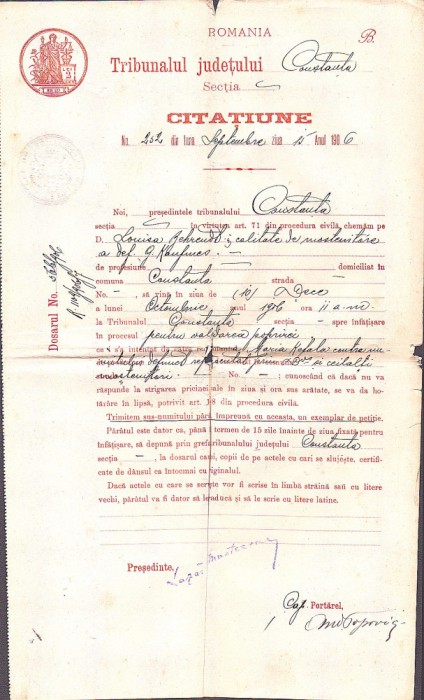 ROMANIA
B.
Tribunalul județului Constanta
Secția
CITAȚIUNE
No. 252 din luna Septembre ziua 15 Anul 1906
Dosarul No.
Noi, președintele tribunalului Constanta
secția — în virtutea art. 71 din procedura civilă, chemăm pe
D. Louisa Behrendt în calitate de mostenitóre
a def.
de profesiune — domiciliat în
comuna Constanta strada —
No. — să vină în ziua de (10) Dece
a lunei Octombrie anul 1906 ora 11 a.m
la Tribunalul Constanta secția — spre înfățișare
în procesul pentru validarea popririi
ce i s'a intentat de Maria Kefala contra
defunct ceilalți
mostenitori. No. — cunoscând că dacă nu va
răspunde la strigarea pricinei ale în ziua și ora sus arătate, se va do-
hotărare în lipsă, potrivit art. 18 din procedura civilă.
Trimitem sus-numitului pârâ împreună cu aceasta, un exemplar de petiție.
Pârâtul este dator ca, până în termen de 15 zile înainte de ziua fixată pentru
înfățișare, să depună prin grefa tribunalului județului Constanta
secția — la dosarul cauzei, copii de pe actele cu cari se slujește, certificate
de dânsul ca întocmai cu originalul.
Dacă actele cu care se servește vor fi scrise în limbă străină sau cu litere
vechi, pârâtul va fi dator să le traducă și să le scrie cu litere latine.
Președinte,
Portărel,